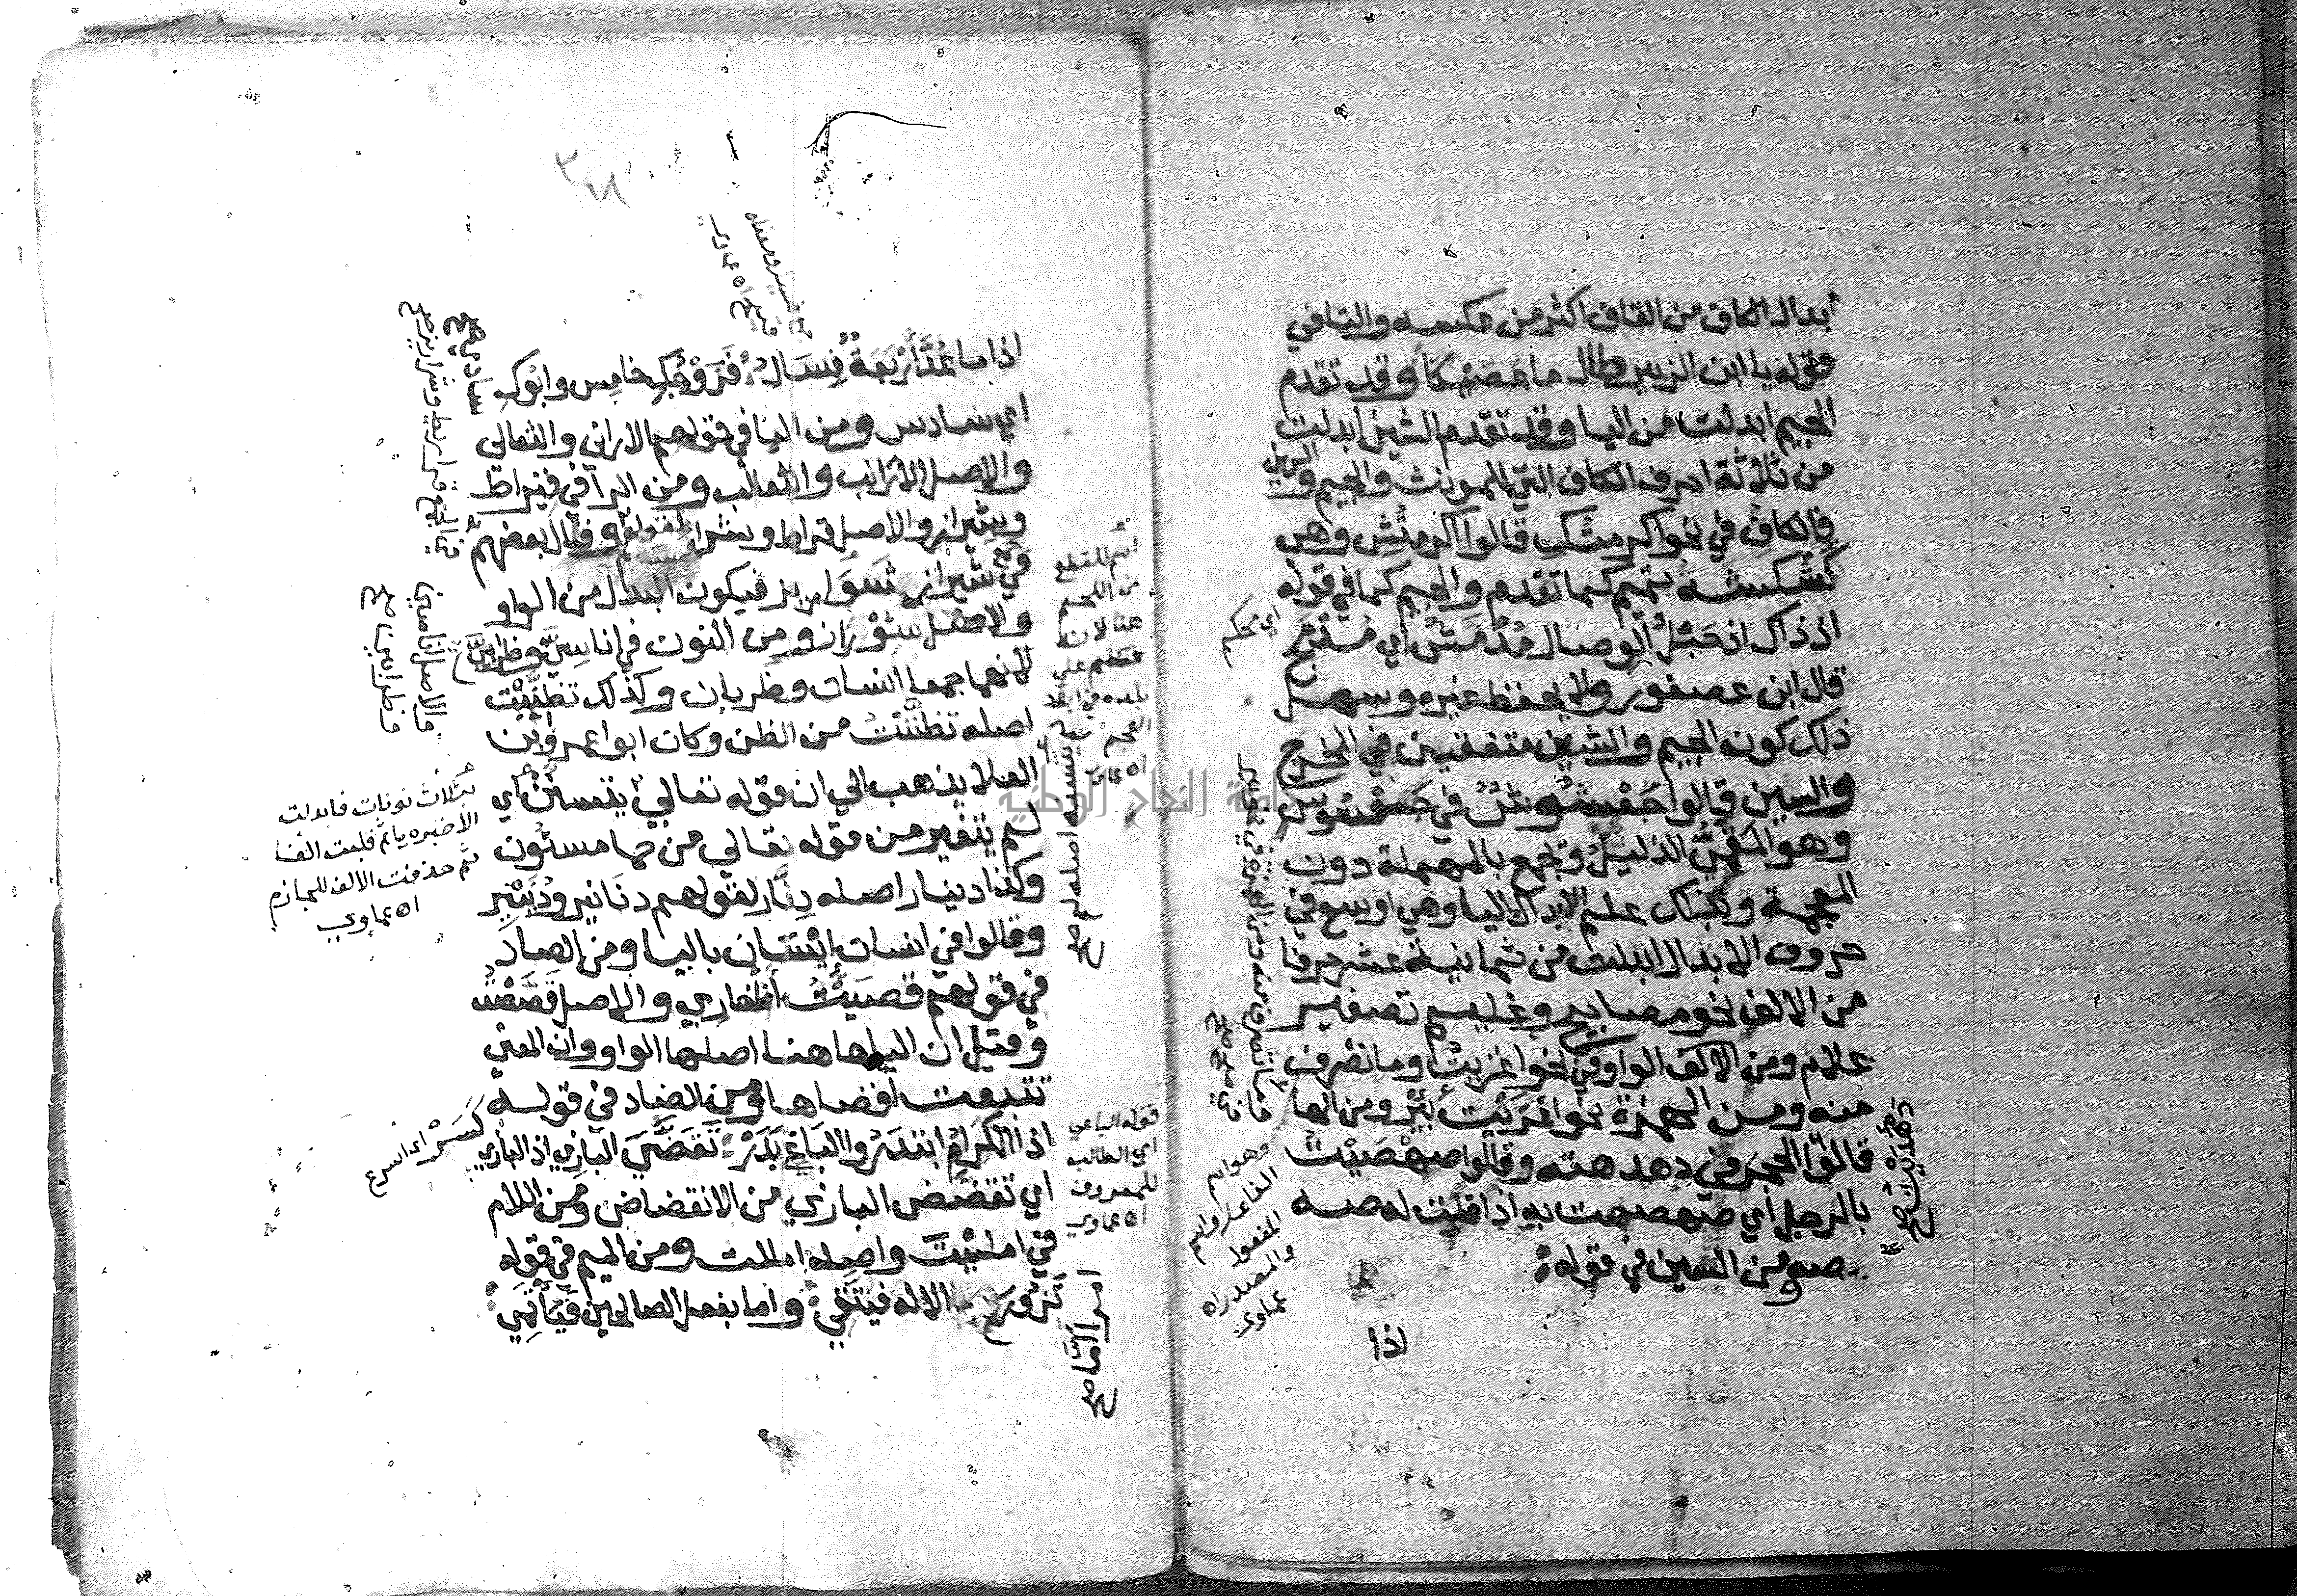 ابدال الكاف من القاف اكثر من عكسه والتا في
قوله يا ابن الزبير طال ما عصيكا وقد تقدم
الجيم ابدلت من اليا وقد تقدم الشين ابدلت
من ثلاثة احرف الكاف التي للمونث والجيم والسين
فالكاف في نحو اكرمتك قالوا اكرمتش وهي
كشكشة تميم كما تقدم والجيم كما في قوله
اذ ذاك اذ حبل الوصال مدمش اي مدمج
قال ابن عصفور ولا يحفظ غيره وسهل
ذلك كون الجيم والشين متفقين في المخرج
والسين قالوا جعشوش في جعسوس
وهو القمئ الذليل وتجمع بالمهملة دون
المعجمة وبذلك علم الابدال اليا وهي اوسع في
حروف الابدال ابدلت من ثمانية عشر حرفا
من الالف نحو مصابيح وغليم تصغير
غلام ومن الالف الواو في نحو اغزيت وما تصرف
منه ومن الهمزة نحو بير ومن الها
قالوا الحجر في دهدهته وقالوا صهصيت
بالرجل اي صهصهت به اذا قلت له صه
صه ومن السين في قوله
اذا
اي محكم
وهو اسم
الفاعل واسم
المفعول
والمصدر اه
عماوي
اذا ما عد اربعة فسال فزوجك خامس وابوك
سادي صح
اي سادس ومن البا في قولهم الاراني والثعالي
والاصل الارانب والثعالب ومن الرا في قيراط
وشيراز والاصل قراط وشراز وقال بعضهم
في شيراز شواريز فيكون البدل من الواو
والاصل شوراز ومن النون في اناسي وظرابي
لانهما جمعا انسان وظربان وكذلك تظنيت
اصله تظننت من الظن وكان ابو عمرو ابن
العلا يذهب الي ان قوله تعالي يتسنن اي
لم يتغير من قوله تعالي من حما مسنون
وكذا دينار اصله دنار لقولهم دنانير ودنينير
وقالوا في انسان ايسان باليا ومن الصاد
في قولهم قصيت اظفاري والاصل قصصت
وقيل ان اليا هاهنا اصلها الواو وان المعني
تتبعت اقصاها ومن الضاد في قوله
اذا الكرام ابتدروا الباع بدر تقضي البازي اذ البازي
كسر اي اسرع
اي تقضض البازي من الانقضاض ومن اللام
في امليت واصله امللت ومن الميم في قوله
تزور الاله فيتقي واما بفعل الصالحين فياتمي
اسم للمقطع
من اللحم
هنا لانه
بثلاث نونات فابدلت
الاخيره يا ثم قلبت الفا
ثم حذفت الالف للجازم
اه عماوي
قوله الباعي
اي الطالب
للمعروف
اه عماوي
امرا اما صح